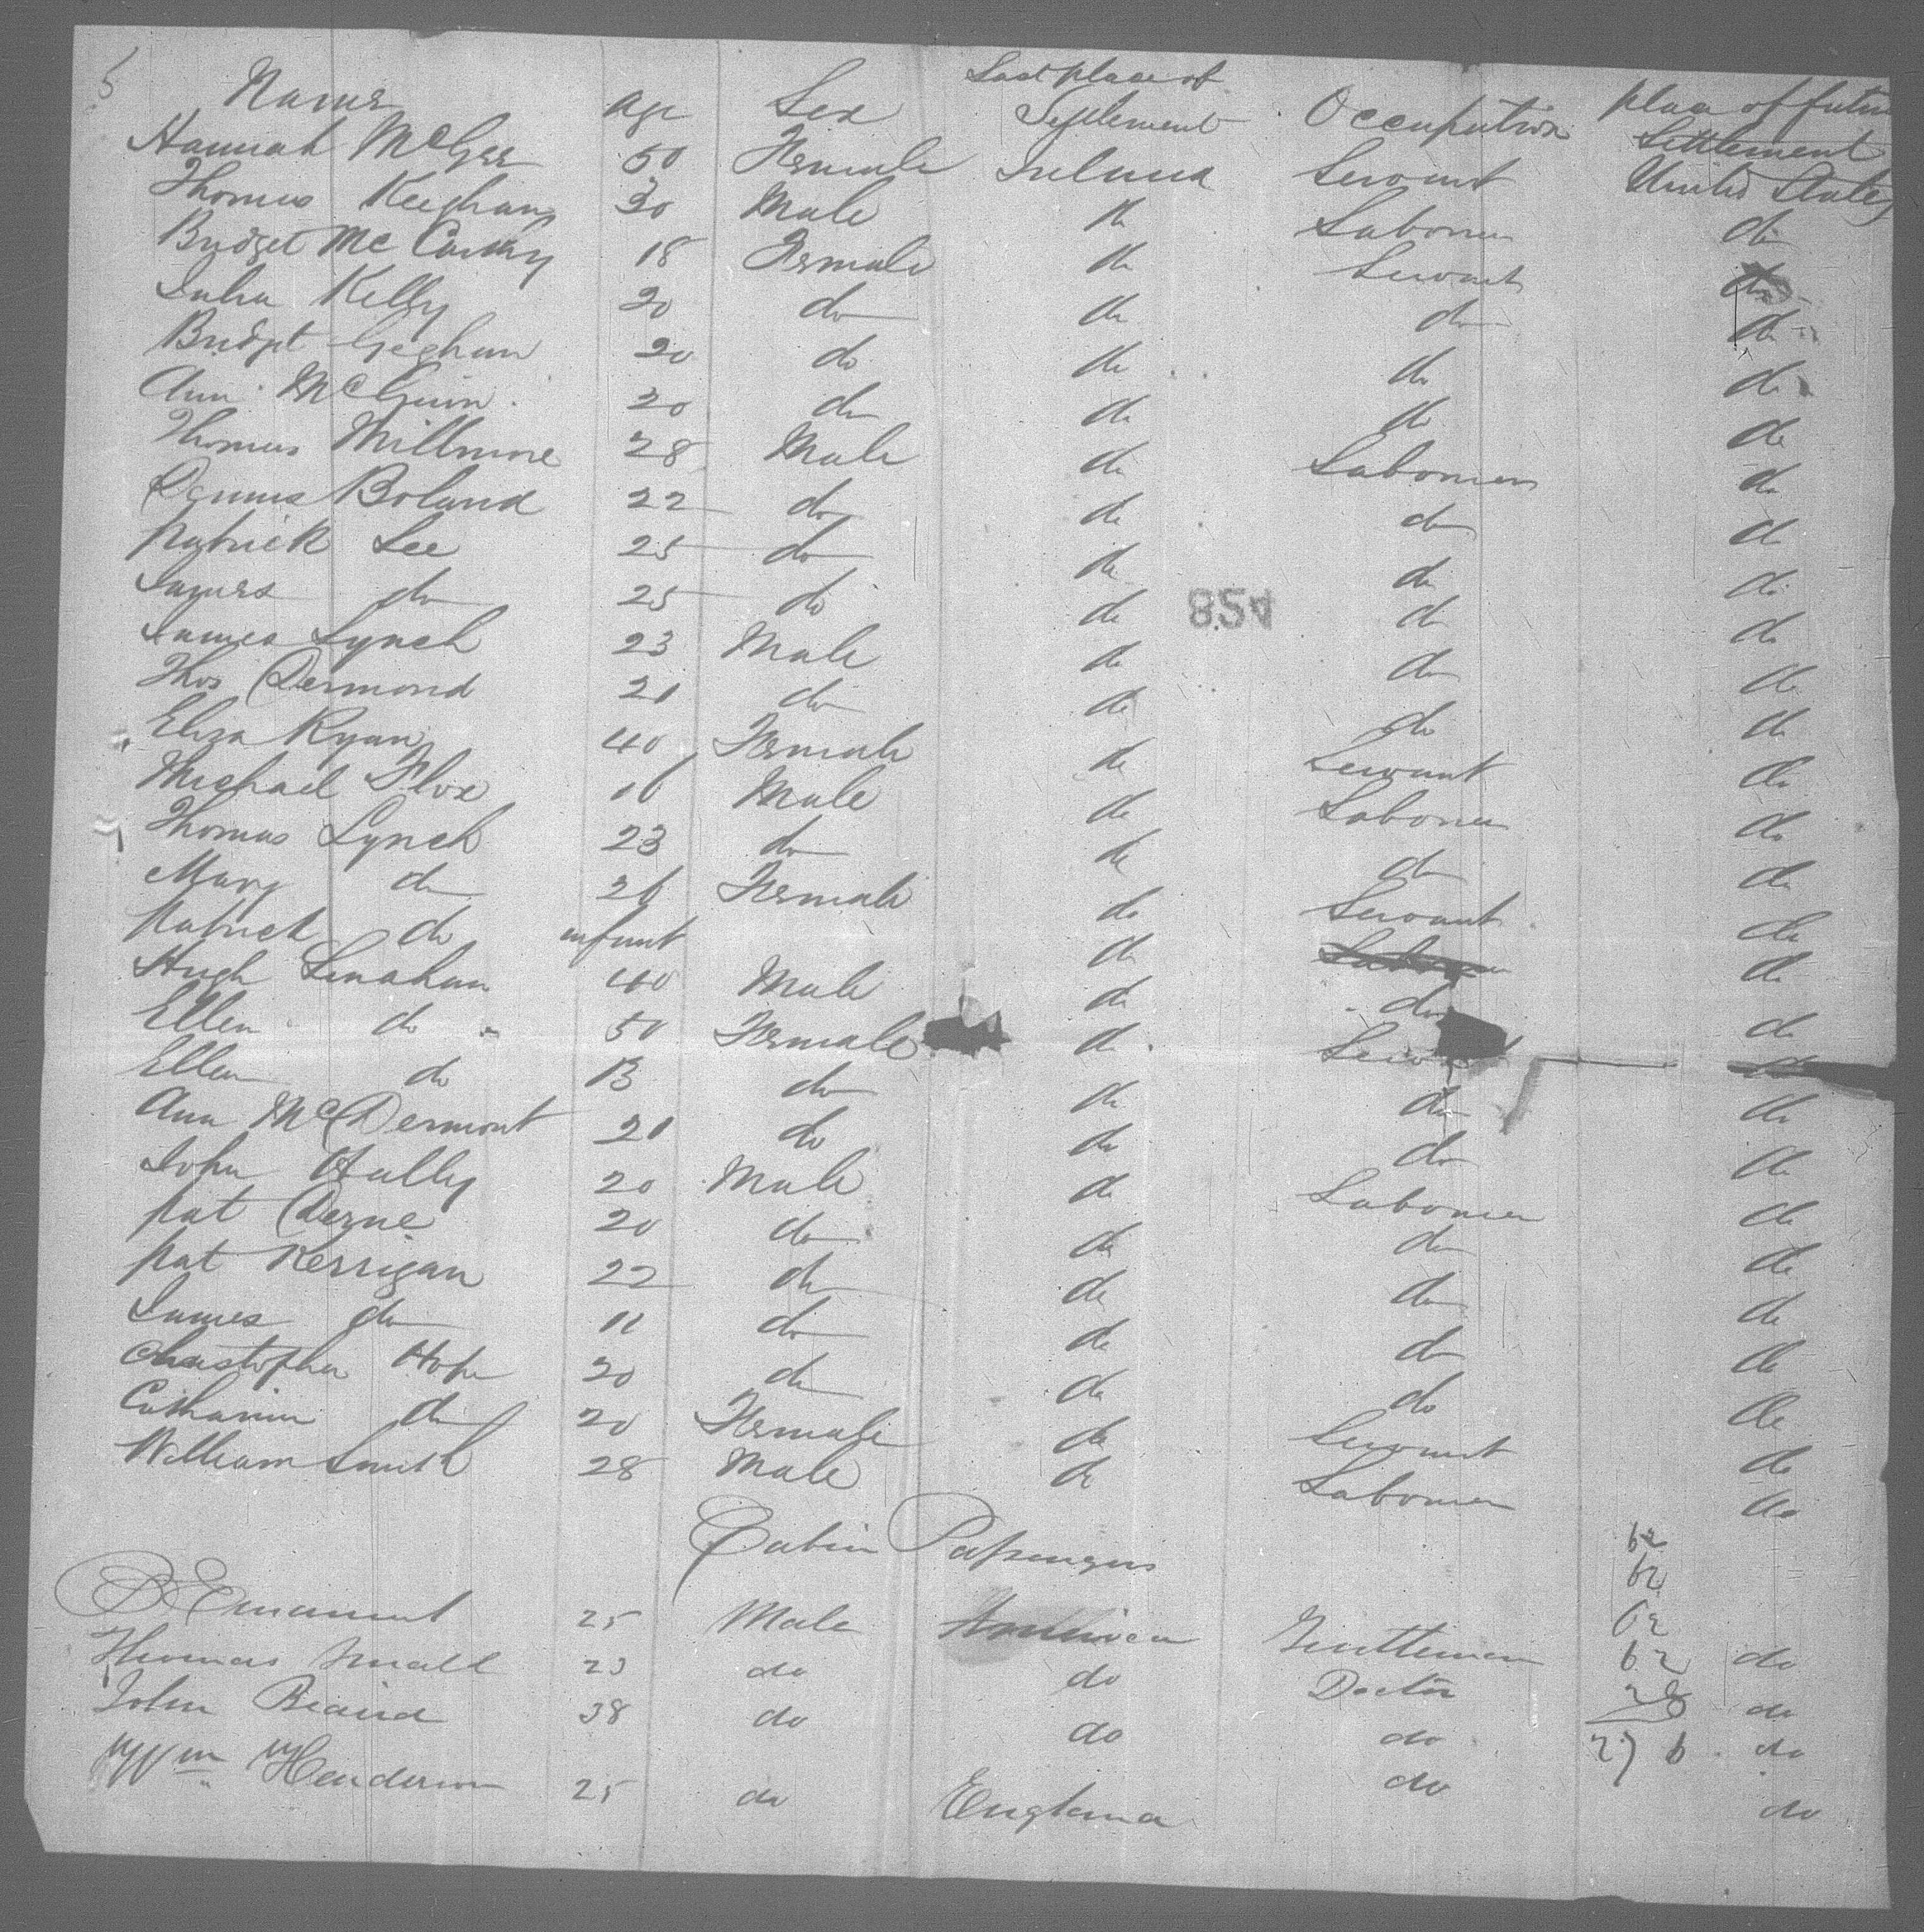 5
Names Age Sex Last place of Settlement Occupation place of future Settlement
Hannah McGee 50 Female Ireland Servant United States
Thomas Keeghan 30 Male do Laborer do
Bridget McCarthy 18 Female do Servant do
Julia Kelly 20 do do do do
Bridget Geghan 20 do do do do
Ann McGuin 20 do do do do
Thomas Millmore 28 Male do Laborer do
Dennis Boland 22 do do do do
Patrick Lee 25 do do do do
James do 25 do do do do
James Lynch 23 Male do do do
Thos Dermond 21 do do do do
Eliza Ryan 40 Female do Servant do
Michael 16 Male do Laborer do
Thomas Lynch 23 do do do do
Mary do 26 Female do Servant do
Patrick do infant do do
Hugh Lenahan 40 Male do do do
Ellen do 50 Female do Servant do
Ellen do 13 do do do do
Ann McDermont 21 do do do do
John Hally 20 Male do Laborer do
Pat 20 do do do do
Pat Kerrigan 22 do do do do
James do 11 do do do do
Christopher Hope 20 do do do do
Catharine do 20 Female do Servant do
William Smith 28 Male do Laborer do
Cabin Passengers
62
62
62
B Emanuel 25 Male America Gentleman 62 do
Thomas Small 23 do do Doctor 28 do
John Beaird 38 do do do 276 do
Wm Henderson 25 do England do do